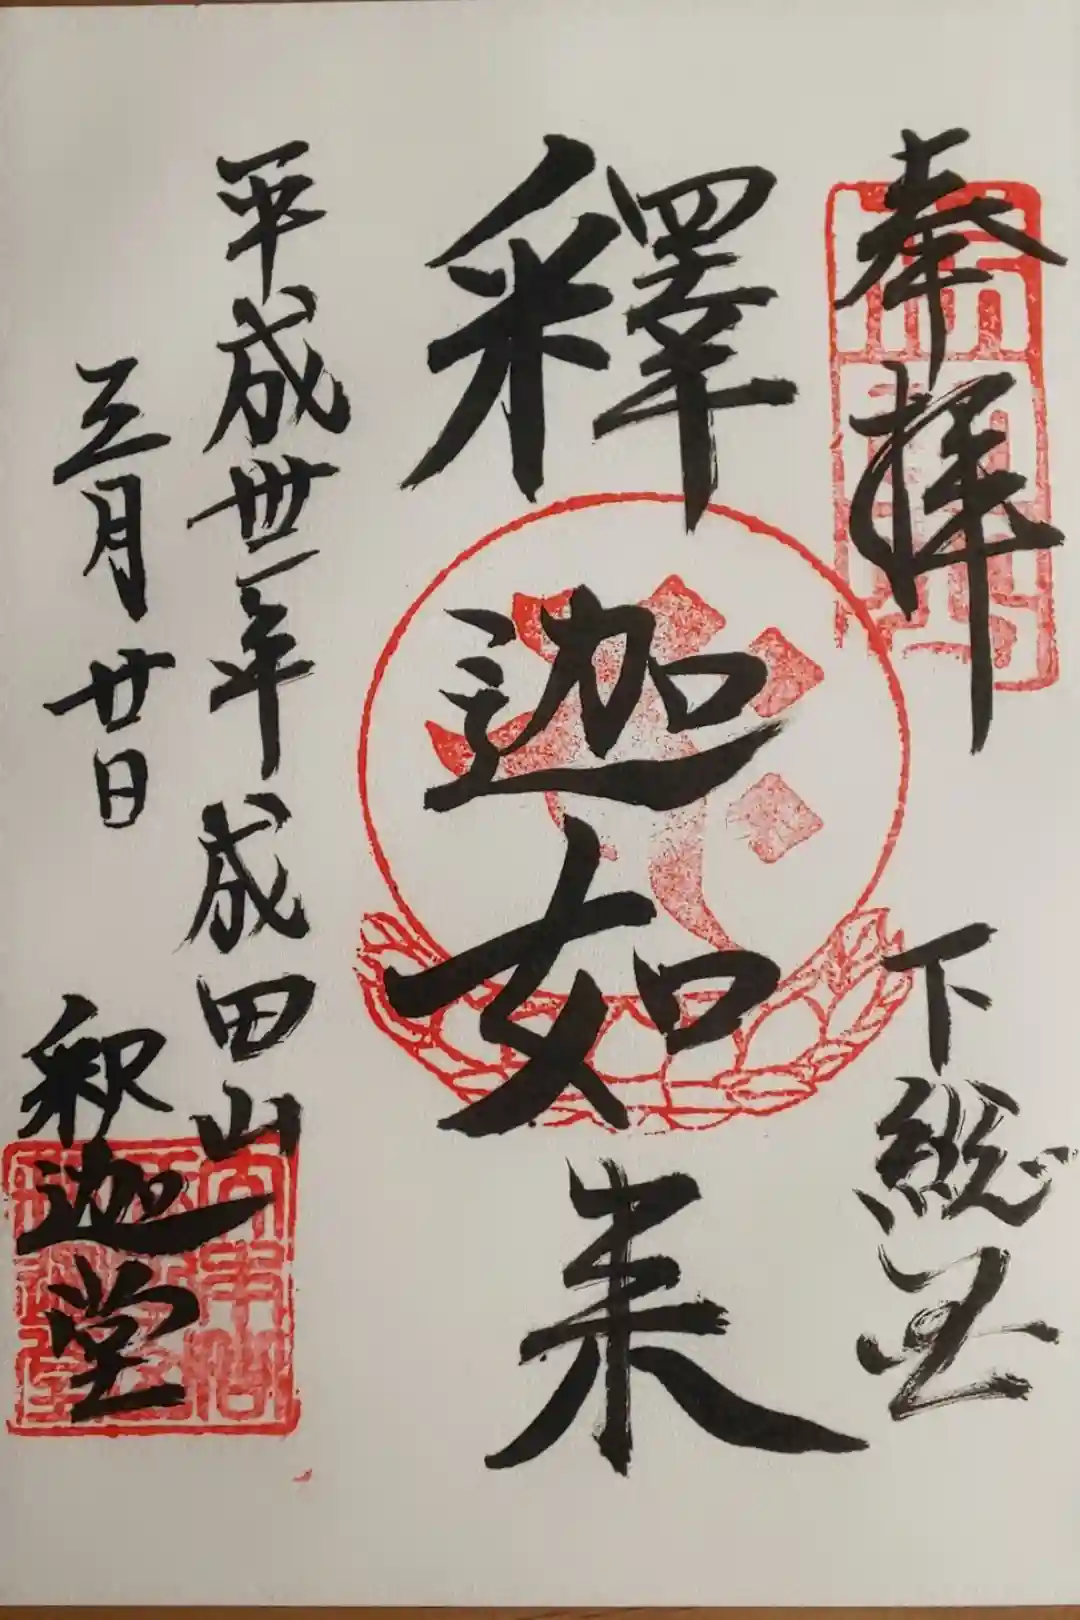 奉拝 下総国
釋迦如来
平成丗一年 成田山
三月廿日 釈迦堂